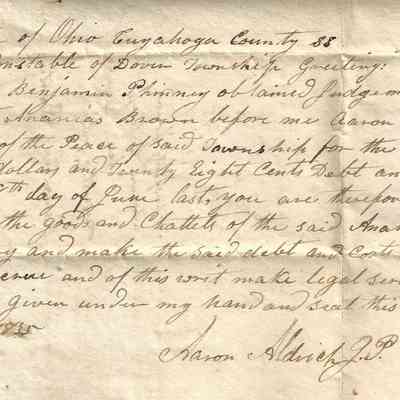 of Ohio Cuyahoga County SS
nstable of Dover Township Greeting:
Benjamin Phinney obtained Judgem
Ananias Brown before me Aaron
of the Peace of said Township for the
Dollars and Twenty Eight Cents Debt an
th day of June last, you are therefore
the goods and Chattels of the said Anan
and make the said debt and Costs
and of this writ make legal serv
given under my hand and seal this
1835
Aaron Aldrich J.P.